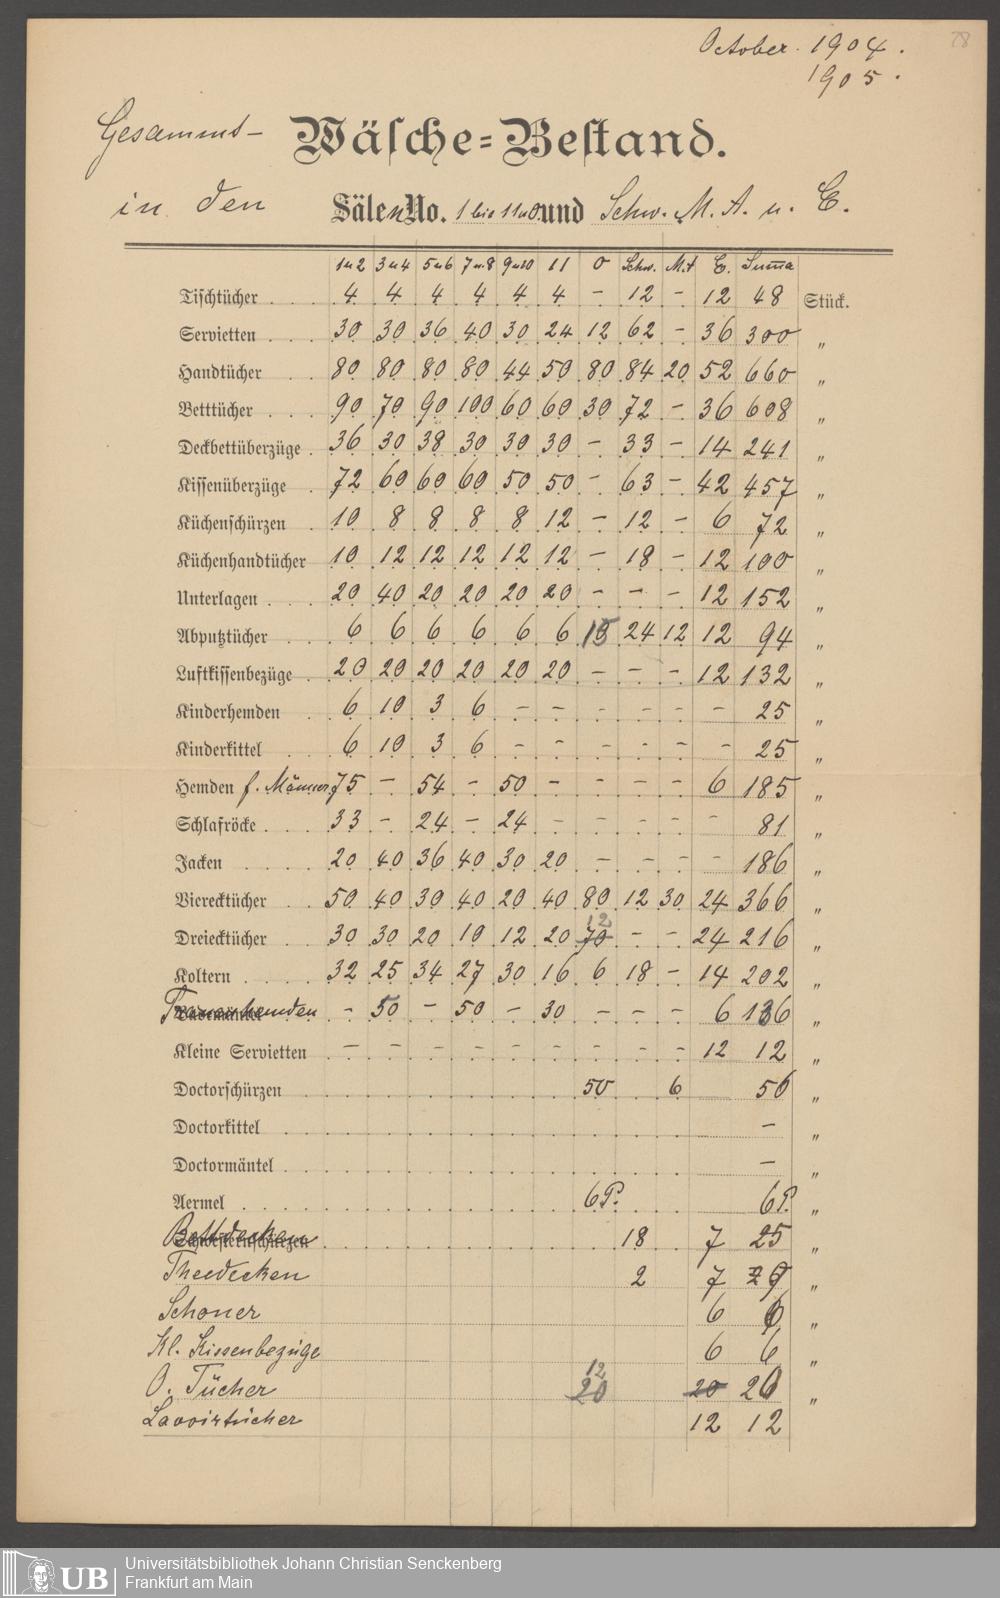 October. 1904.
1905.
78
Gesammt- Wäsche=Bestand.
in den Sälen No. 1 bis 11 u 0 und Schw. M. A. u. C.
1 u 2 3 u 4 5 u 6 7 u. 8 9 u 10 11 0 Schw. M. A C. Summa
Tischtücher . . . 4 4 4 4 4 4 – 12 – 12 48 Stück.
Servietten . . . 30 30 36 40 30 24 12 62 – 36 300 „
Handtücher . . 80 80 80 80 44 50 80 84 20 52 660 „
Betttücher . . . 90 70 90 100 60 60 30 72 – 36 608 „
Deckbettüberzüge . 36 30 38 30 30 30 – 33 – 14 241 „
Kissenüberzüge . 72 60 60 60 50 50 – 63 – 42 457 „
Küchenschürzen . 10 8 8 8 8 12 – 12 – 6 72 „
Küchenhandtücher 10 12 12 12 12 12 – 18 – 12 100 „
Unterlagen . . . 20 40 20 20 20 20 – – – 12 152 „
Abputztücher . . 6 6 6 6 6 6 15 24 12 12 94 „
Luftkissenbezüge . 20 20 20 20 20 20 – – – 12 132 „
Kinderhemden . 6 10 3 6 – – – – – – 25 „
Kinderkittel . . 6 10 3 6 – – – – – – 25 „
Hemden f. Männer 75 – 54 – 50 – – – – 6 185 „
Schlafröcke . . . 33 – 24 – 24 – – – – – 81 „
Jacken . . . . 20 40 36 40 30 20 – – – – 186 „
Vierecktücher . . 50 40 30 40 20 40 80 12 30 24 366 „
12
Dreiecktücher . . 30 30 20 10 12 20 70 – – 24 216 „
Koltern . . . . 32 25 34 27 30 16 6 18 – 14 202 „
Frauenhemden – 50 – 50 – 30 – – – 6 136 „
Kleine Servietten . – – – – – – – – – 12 12 „
Doctorschürzen . 50 6 56 „
Doctorkittel . . – „
Doctormäntel . . – „
Aermel . . . . 6 P. 6 P. „
Bettdecken 18 7 25 „
Theedecken 2 7 29 „
Schoner 6 6 „
Kl. Kissenbezüge 6 6 „
12
O. Tücher 20 20 20 „
Lavoirtücher 12 12
UB Universitätsbibliothek Johann Christian Senckenberg
Frankfurt am Main